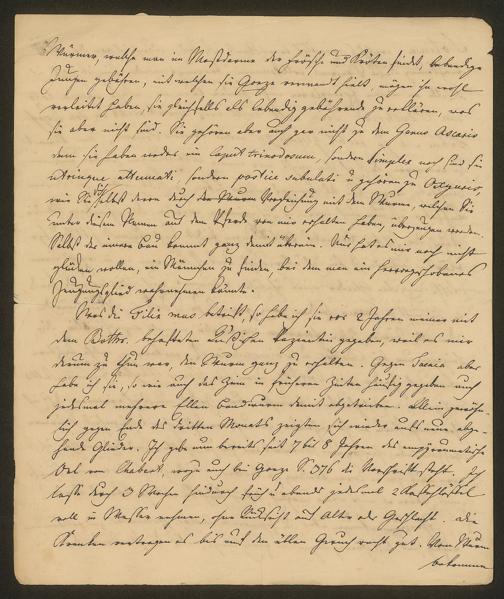 Würmer, welche man im Mastdarme der Frösche und Kröten findet, lebendige
Jungen gebähren, mit welchen sie Goeze verwandt hielt, mögen ihn wohl
verleitet haben, sie gleichfalls als lebendig gebährende zu erklären, was
sie aber nicht sind. Sie gehören aber auch gar nicht zu dem Genus Ascaris
denn sie haben weder ein Caput trinodosum, sondern simplex noch sind sie
utrinque attenuati, sondern postice subulati u gehören zu Oxyuris,
wie Sie sich selbst davon durch den Wurm Vergleichung mit dem Wurm, welchen Sie
unter diesem Namen aus dem Pferde von mir erhalten haben, überzeugen werden.
Selbst der innere Bau kommt ganz damit überein. Nur hat es mir noch nicht
glücken wollen, ein Männchen zu finden, bei dem man ein hervorgeschobenes
Zeugungsglied wahrnehmen könnte.
Was die Filix mas betrifft, so habe ich sie vor 2 Jahren meiner mit
dem Bothr. behafteten Patientin gegeben, weil es mir
darum zu thun war, den Wurm ganz zu erhalten. Gegen Taenia aber
habe ich sie, so wie auch das Zinn in früheren Zeiten häufig gegeben und
jedesmal mehrere Ellen Bandwurm damit abgetrieben. Allein gewöhn-
lich gegen Ende des dritten Monats zeigten sich wieder aufs neue abge-
hende Glieder. Ich gebe nun bereits seit 7 bis 8 Jahren das empyreumatische
Oel von Chabert, wozu auch bei Goeze S. 376 die Vorschrift steht. Ich
lasse durch 3 Wochen hindurch früh u abends jedesmal 2 Kaffeelöffel
voll in Wasser nehmen, ohne Rücksicht auf Alter oder Geschlecht. Die
Kranken vertragen es bis auf den üblen Geruch recht gut. Vom Wurm
bekommen